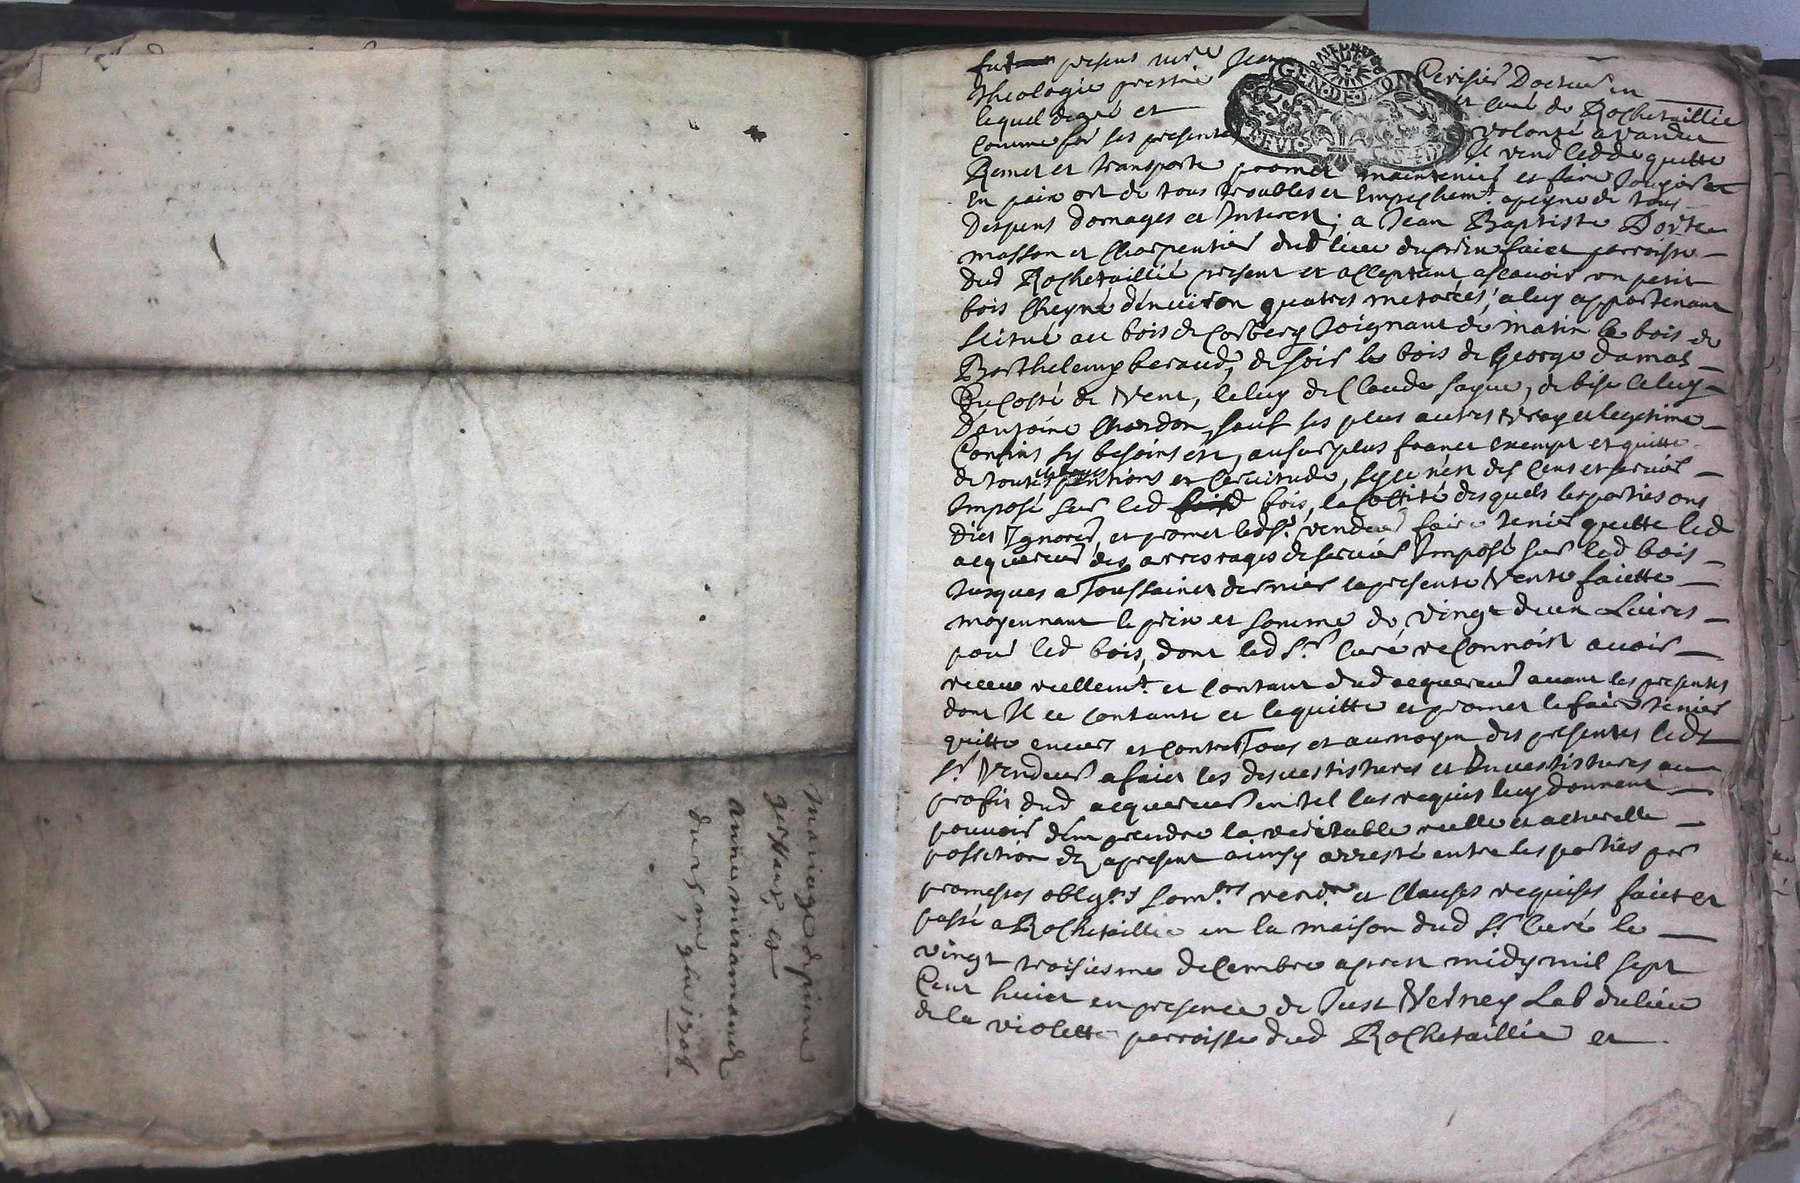 mariage de pierre
gerossaux, et
Anne miramand
du 25me 9bre 1708
GEN. DE LION
fut present mre Jean Cerisier Docteur en
theologie prestre et curé de Rochetaillie
lequel de gré et volonté a vandu
comme for ses presentes Il vend led de quitte
Remet et transporte promet maintenir et faire
En paix ort de tous troubles et Empeschemt. apeyne de tous
Despens domages et Interest ; a Jean Baptiste
masson et Charpentier dud lieu parroisse
dud Rochetaillié present et acceptant ascavoir un petit
bois Cheyne denviron quatres metorées, a luy appartenant
scitué au bois de Joignant de matin le bois de
Barthelemy beraud, de soir le bois de George damas
Du Costé de Vent, celuy de Claude faque, de bise celuy
Dantoine Chardon, sauf ses plus autres Vray et legitime
Confins sy besoins est, au surplus franc exempt et quitte
de toutes pentions et Cervitude, sy ce n'est des Cens et servis
Imposé sur led bois, la cottité desquels les parties ont
Dict Ignorer, et promet led Sr. vendeur faire tenir quitte led
acquereur des arresrages de servis Imposé sur led bois
Jusques a Toussainct dernier la presente Vente faiette
moyennant le prix et somme de vingt deux Livres
pour led bois, dont led Sr. Curé reconnoist avoir
receu reellemt. et contant dud acquereur avant les presentes
dont Il ce contante et le quitte et promet le faire tenir
quitte envers et contre Tous et au moyen des presentes led
Sr. Vendeur a faict les desvestitures et Investitures au
profit dud acquereur en tel cas requis luy donnant
pouvoir d'en prendre la veritable reelle et actuelle
possetion dez apresent ainsy arresté entre les parties par
promesses oblig.ns soum.ons renon.ons et Clauses requises faict et
passé a Rochetaillie en la maison dud Sr. Curé le
vingt troisiesme decembre apres midy mil sept
Cent huict en presence de Just Verney Lab du lieu
de la violette parroisse dud Rochetaillie et